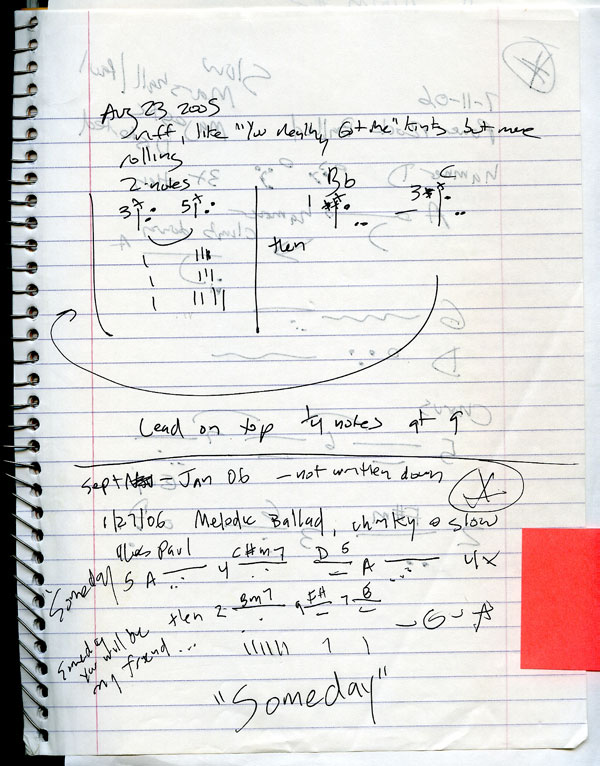 Aug 23 2005
riff, like "You Really Got Me" Kinks but more
rolling
2 notes
3 5 Bb C
1 3
then
1 111
1 111
1 1111
Lead on top 1/4 notes at 9
Sept - Jan 06 - not written down
1/27/06 Melodic Ballad, chunky slow
Les Paul
"Someday 5 A 4 C#m7 D 5 A 4x
Someday
you will be
my friend...
then 2 Bm7 9 7 - G - A
"Someday"